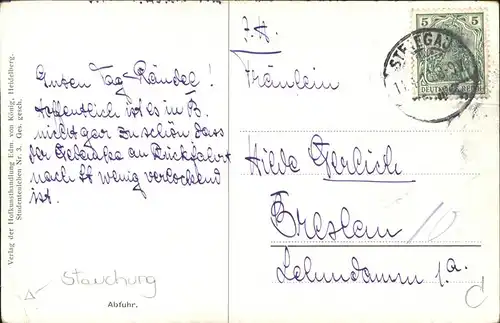 Guten Tag Rändel!
Hoffentlich ist es in B.
nicht gar zu schön dass
der Gedanke an Rückfahrt
nach St wenig verlockend
ist.
Fräulein
Hilde Gerlich
Breslau
Lehmdamm 1a.
5 5
STRIEGAU
DEUTSCHES REICH
Verlag der Hofkunsthandlung Edm. von König, Heidelberg.
Studentenleben Nr. 3. Ges. gesch.
Stauchurg
Abfuhr.